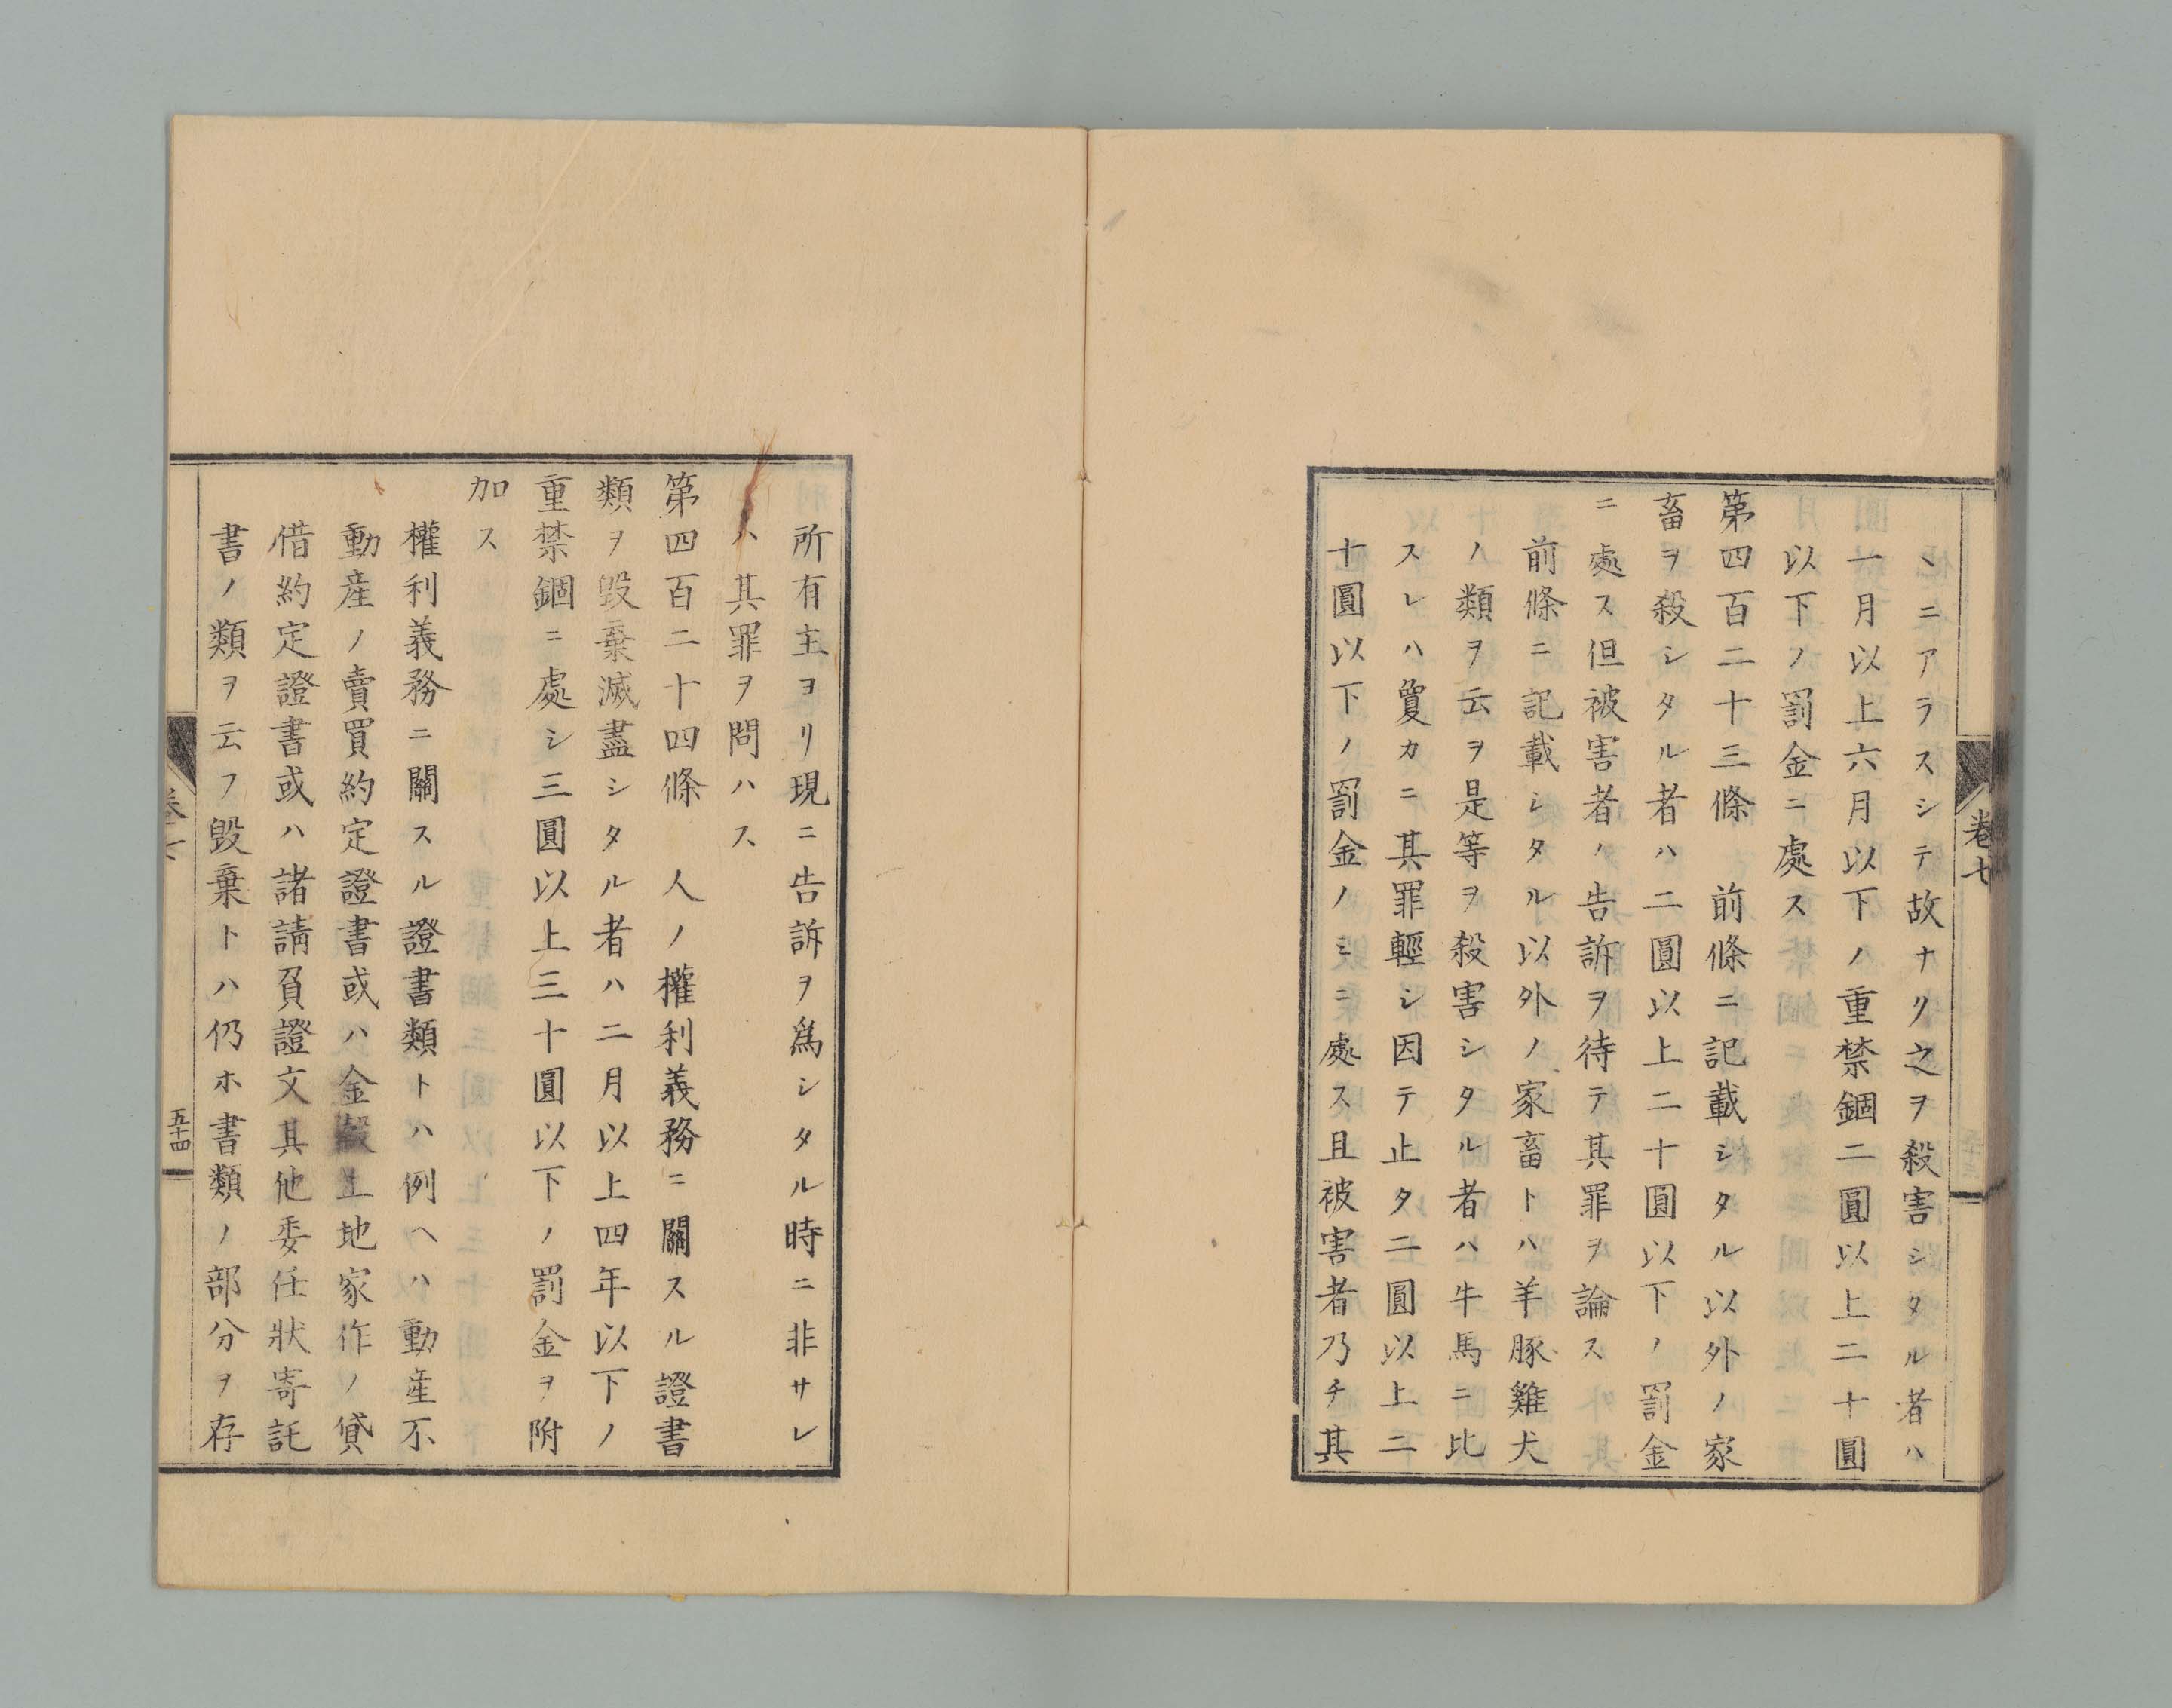 卷七
ヽニアラスシテ故ナク之ヲ殺害シタル者ハ
一月以上六月以下ノ重禁錮二圓以上二十圓
以下ノ罰金ニ處ス
第四百二十三條 前條ニ記載シタル以外ノ家
畜ヲ殺シタル者ハ二圓以上二十圓以下ノ罰金
ニ處ス但被害者ノ告訴ヲ待テ其罪ヲ論ス
前條ニ記載シタル以外ノ家畜トハ羊豚雞犬
ノ類ヲ云ヲ是等ヲ殺害シタル者ハ牛馬ニ比
スレハ敻カニ其罪輕シ因テ止タ二圓以上二
十圓以下ノ罰金ノミニ處ス且被害者乃チ其
所有主ヨリ現ニ告訴ヲ爲シタル時ニ非サレ
ハ其罪ヲ問ハス
第四百二十四條 人ノ權利義務ニ關スル證書
類ヲ毀棄滅盡シタル者ハ二月以上四年以下ノ
重禁錮ニ處シ三圓以上三十圓以下ノ罰金ヲ附
加ス
權利義務ニ關スル證書類トハ例ヘハ動産不
動産ノ賣買約定證書或ハ金穀土地家作ノ貸
借約定證書或ハ諸請負證文其他委任狀寄託
書ノ類ヲ云フ毀棄トハ仍ホ書類ノ部分ヲ存
卷七
五十四